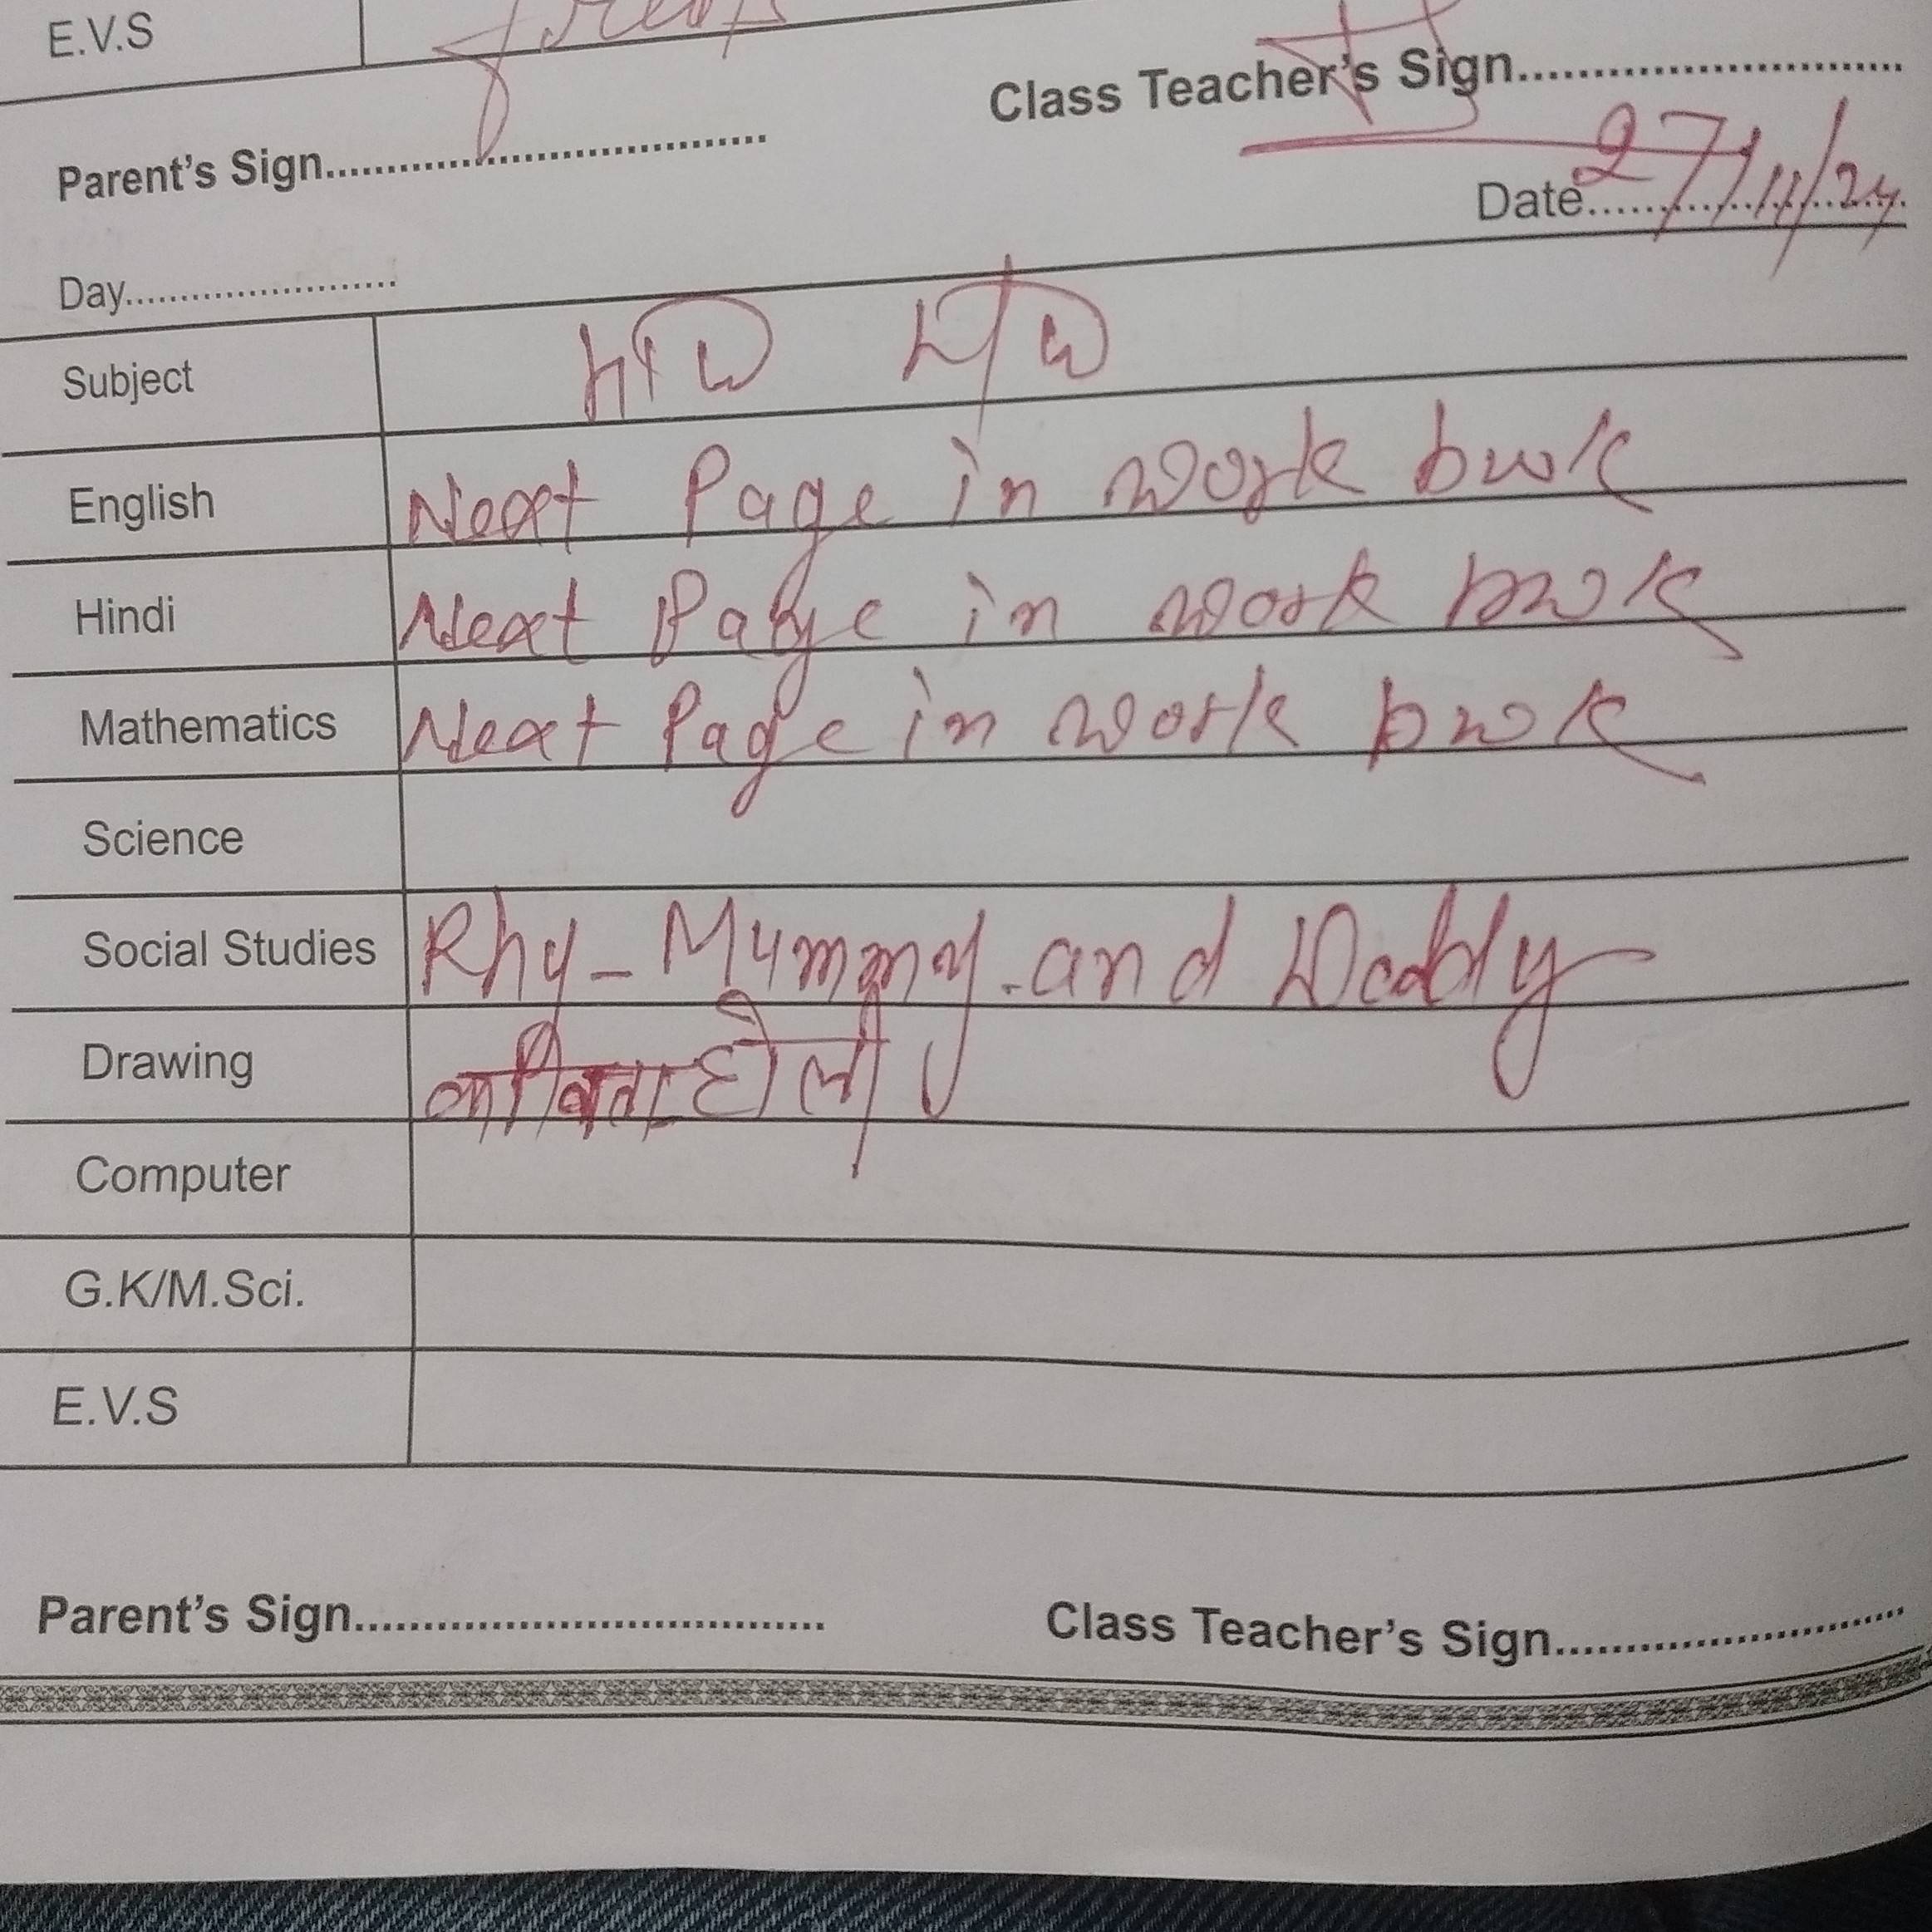 E.V.S
Parent's Sign........................................ Class Teacher's Sign............................
Date 27/11/24
Day........................
Subject H/W H/W
English Next Page in work book
Hindi Next Page in work book
Mathematics Next Page in work book
Science
Social Studies Rhy - Mummy and Daddy
Drawing कविता होली
Computer
G.K/M.Sci.
E.V.S
Parent's Sign................................... Class Teacher's Sign..........................